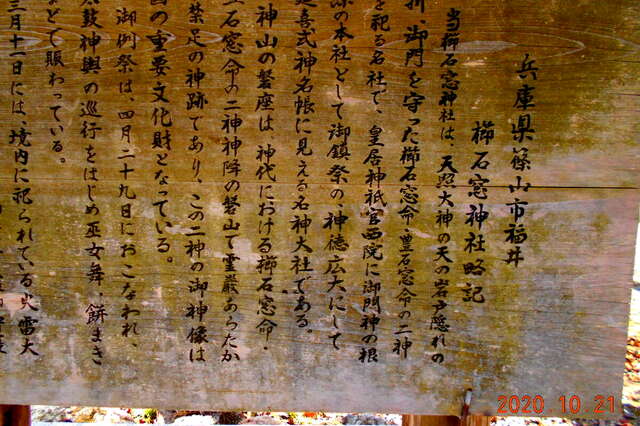 兵庫県篠山市福井
櫛石窓神社略記
当櫛石窓神社は、天照大神の天の岩戸隠れの
、御門を守った櫛石窓命・豊石窓命の二神
を祀る名社で、皇居神祇官西院に御門神の根
源の本社として御鎮祭の、神徳広大にして
延喜式神名帳に見える名神大社である。
神山の磐座は、神代における櫛石窓命・
豊石窓命の二神神降の磐山で霊巌あらたか
禁足の神跡であり、この二神の御神像は
国の重要文化財となっている。
御例祭は、四月二十九日におこなわれ、
太鼓神輿の巡行をはじめ巫女舞、餅まき
などで賑わっている。
三月十一日には、境内に祀られている火雷大
2020.10.21